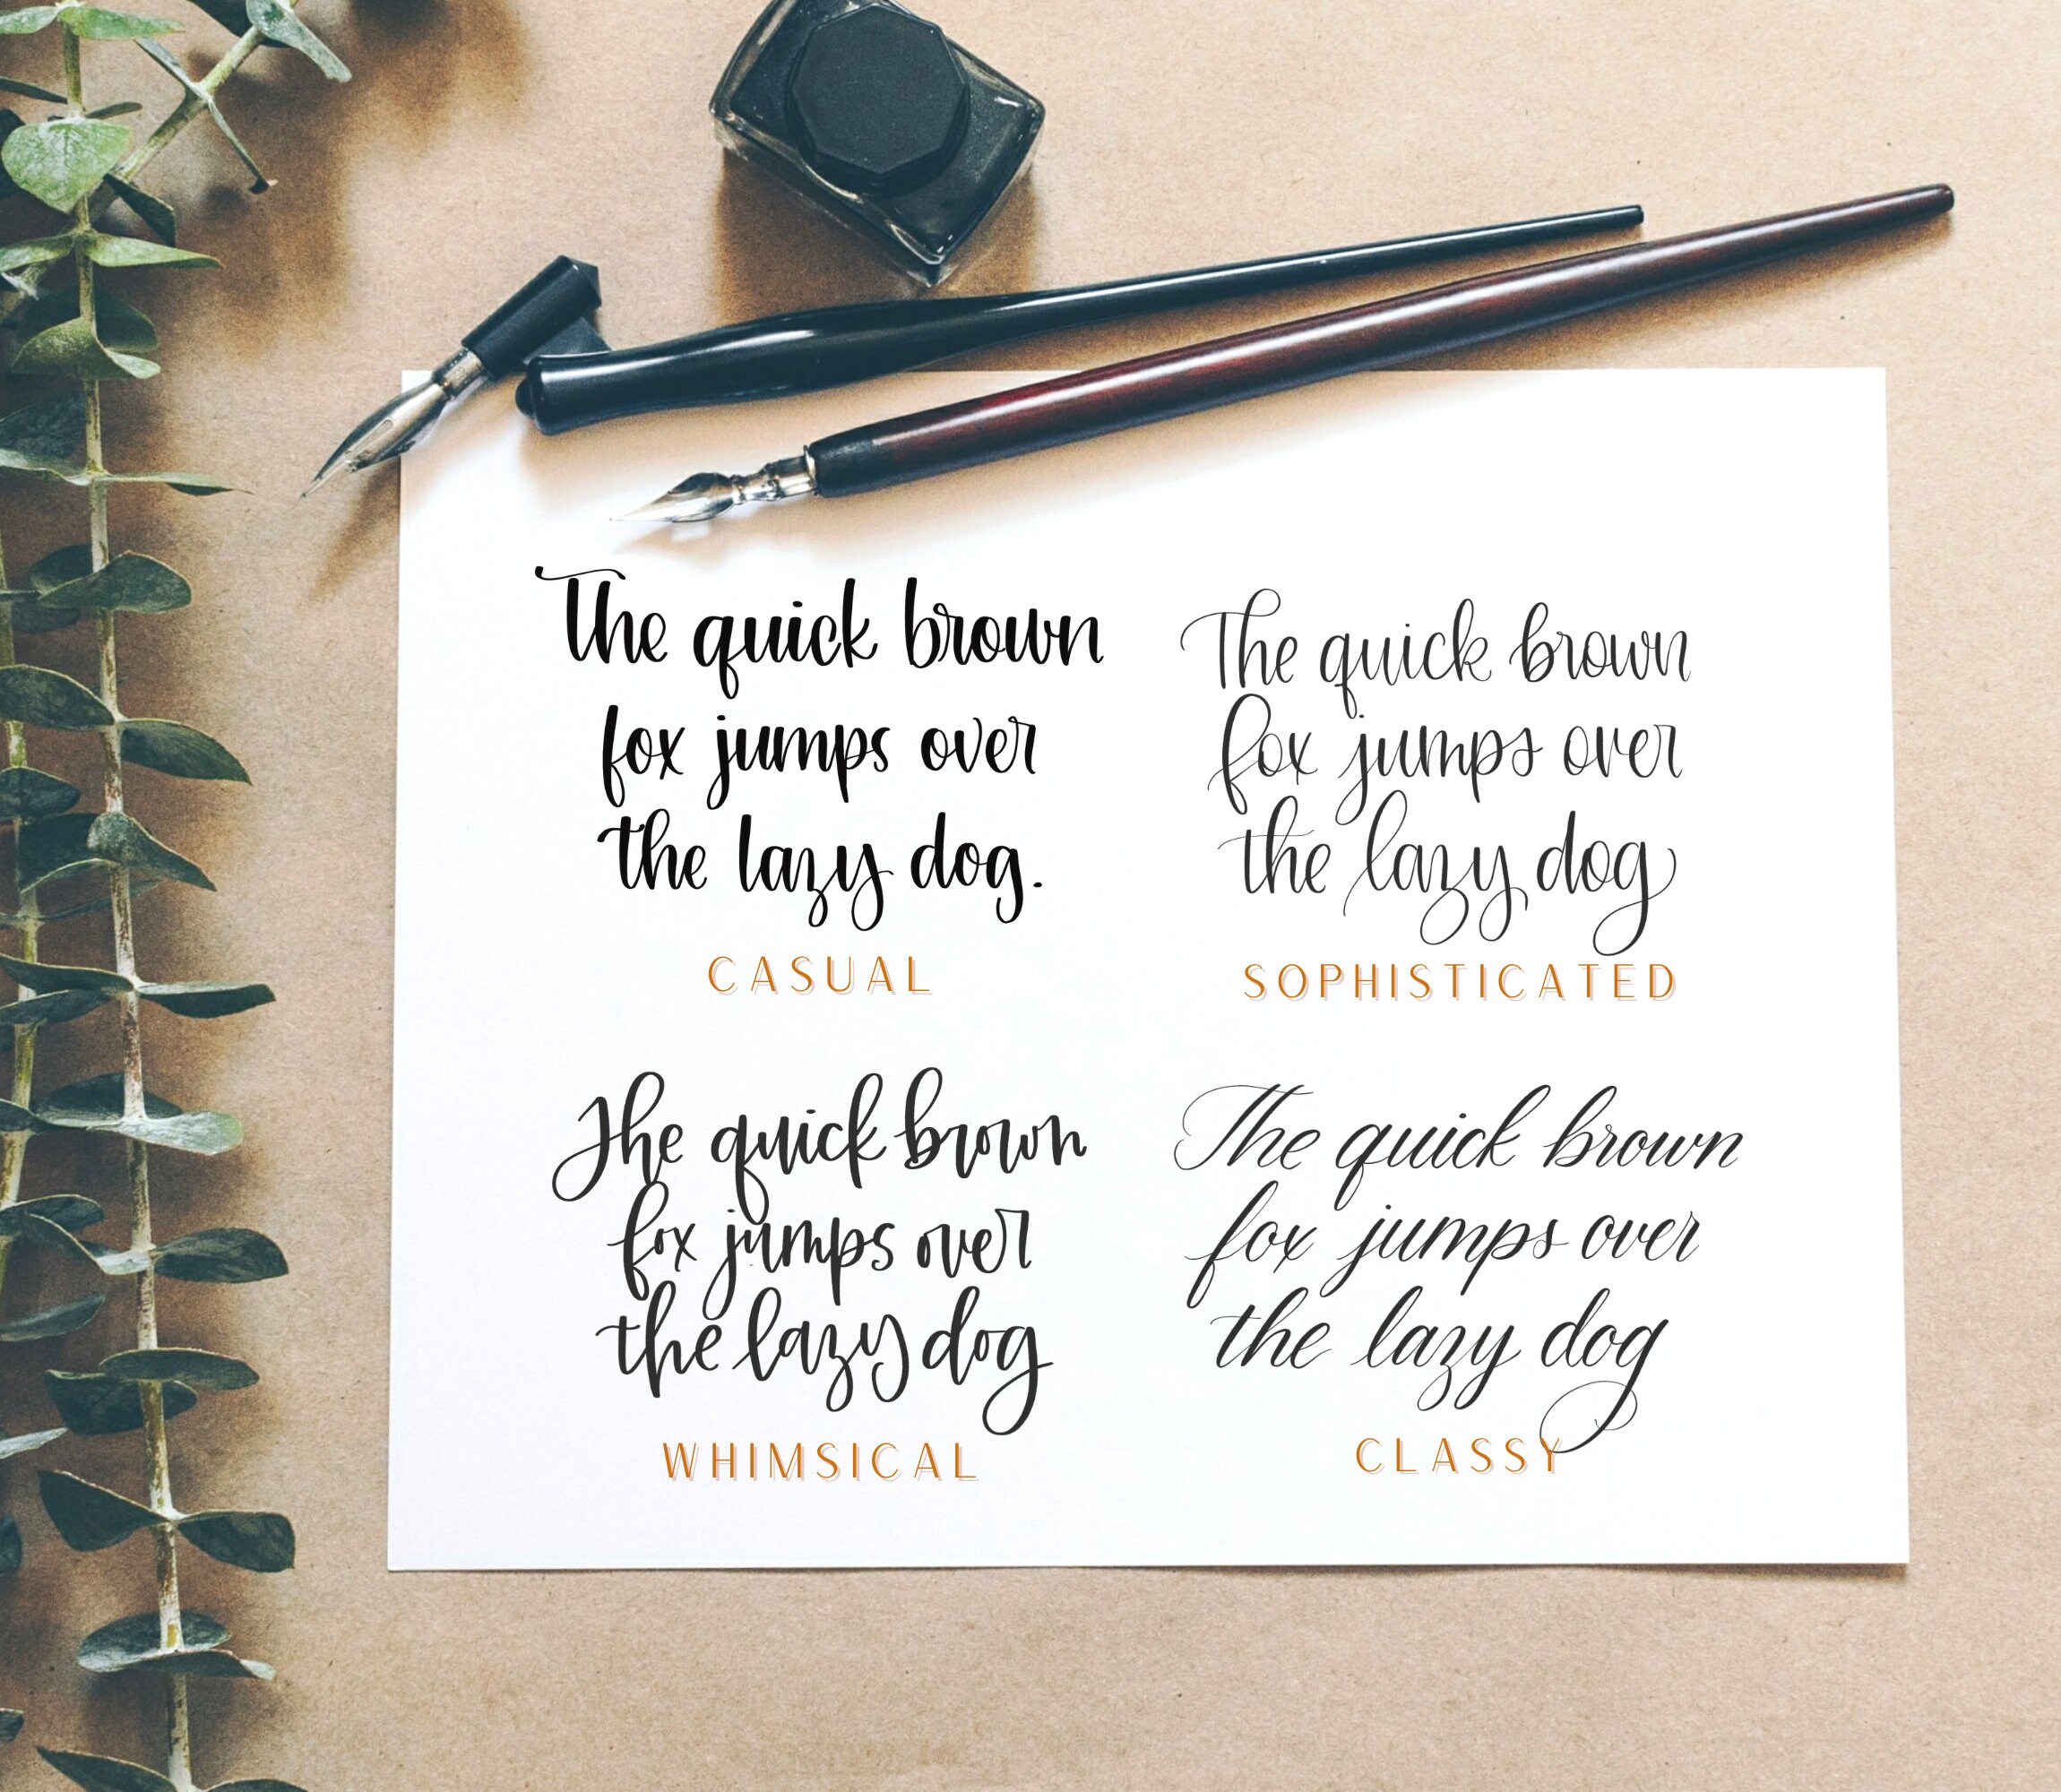 The quick brown
fox jumps over
the lazy dog.
CASUAL
The quick brown
fox jumps over
the lazy dog
SOPHISTICATED
The quick brown
fox jumps over
the lazy dog
WHIMSICAL
The quick brown
fox jumps over
the lazy dog
CLASSY